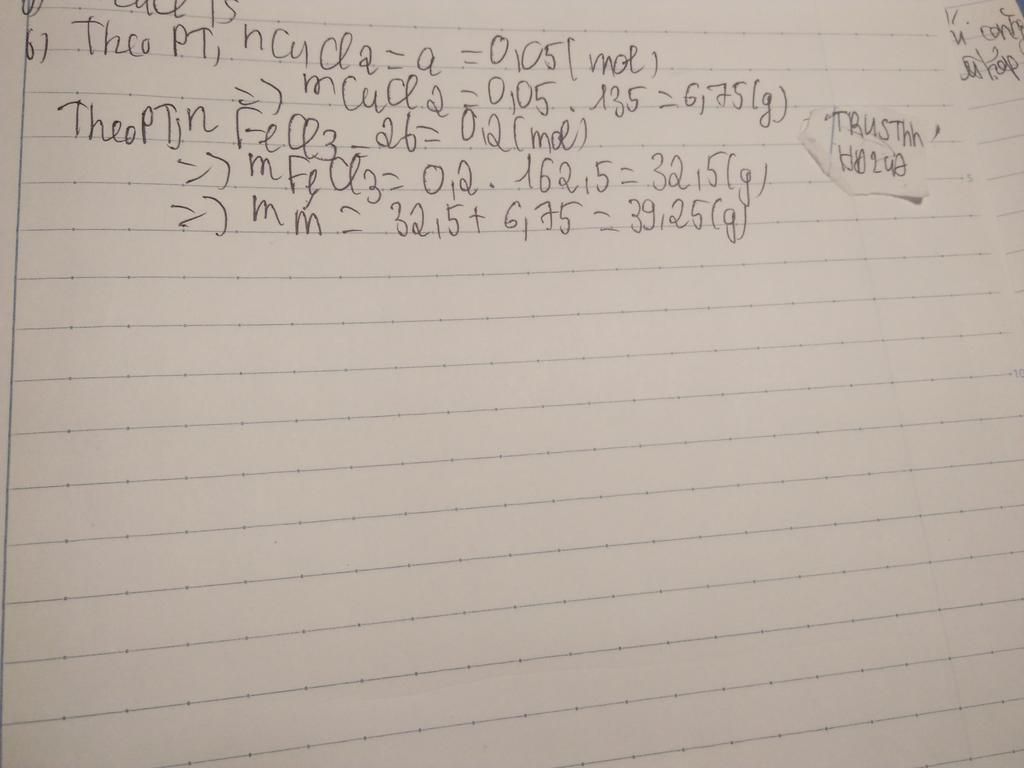 b) Theo PT, nCuCl2 = a = 0,05 (mol)
=> mCuCl2 = 0,05 . 135 = 6,75(g)
Theo PT, n FeCl3 = 2b = 0,2 (mol)
=> mFeCl3 = 0,2 . 162,5 = 32,5(g)
=> m m = 32,5 + 6,75 = 39,25(g)
TRUSThh